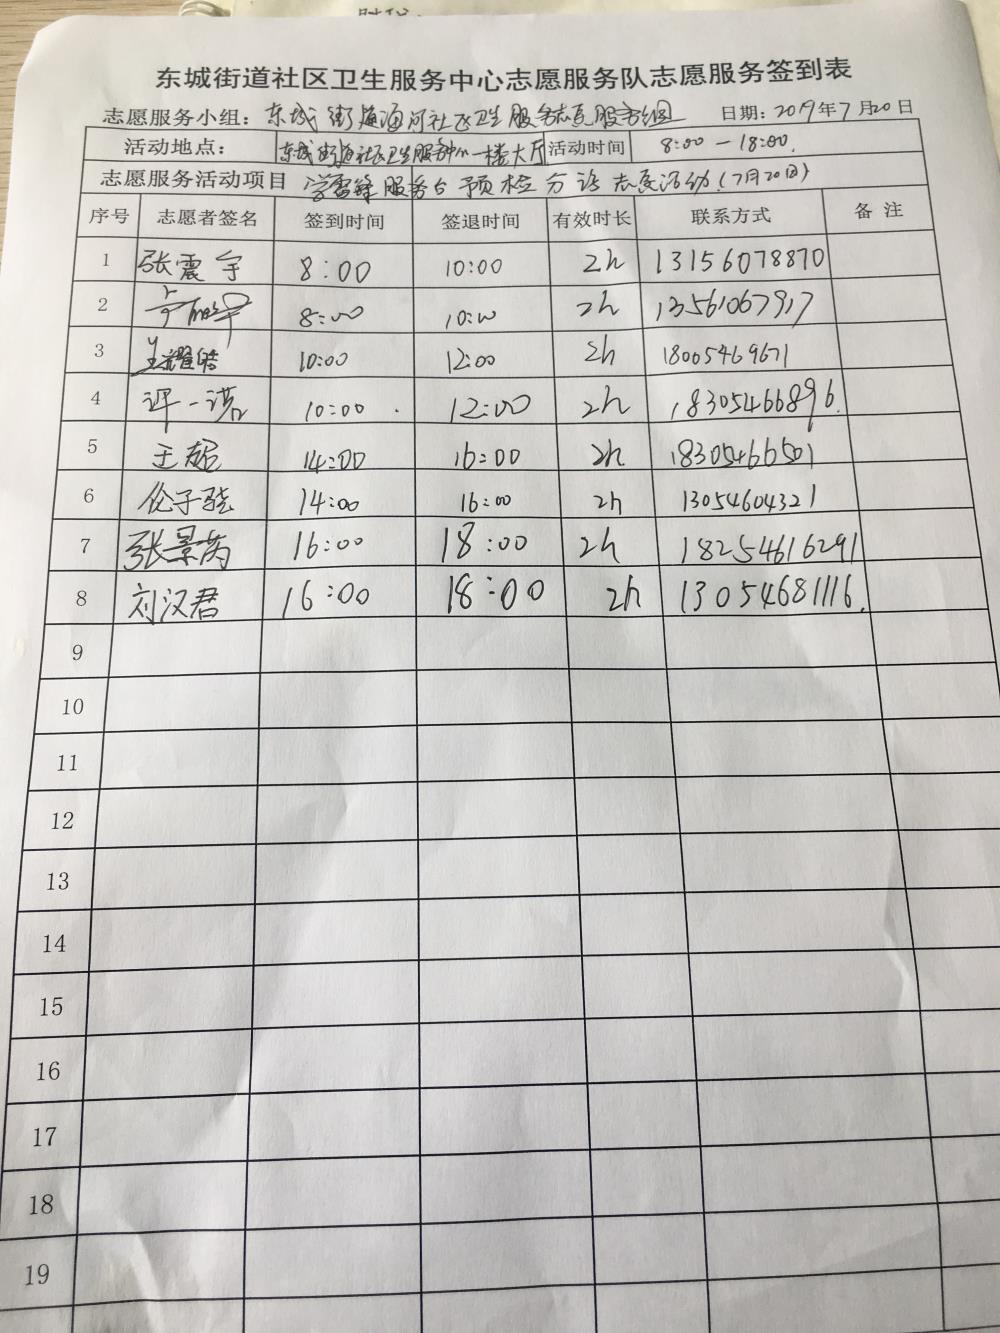 东城街道社区卫生服务中心志愿服务队志愿服务签到表
志愿服务小组：东城街道海河社区卫生服务志愿服务组 日期：2019年7月20日
活动地点： 东城街道社区卫生服务中心一楼大厅 活动时间 8:00－18:00.
志愿服务活动项目 学雷锋服务台预检分诊志愿活动(7月20日)
序号 志愿者签名 签到时间 签退时间 有效时长 联系方式 备 注
1 张震宇 8:00 10:00 2h 13156078870
2 8:00 10:00 2h 13561067917
3 10:00 12:00 2h 18005469671
4 许一诺 10:00 . 12:00 2h 18305466896.
5 王超 14:00 16:00 2h 18305466501
6 伦子骁 14:00 16:00 2h 13054604321
7 张景芮 16:00 18:00 2h 18254616291
8 刘汉君 16:00 18:00 2h 13054681116.
9
10
11
12
13
14
15
16
17
18
19